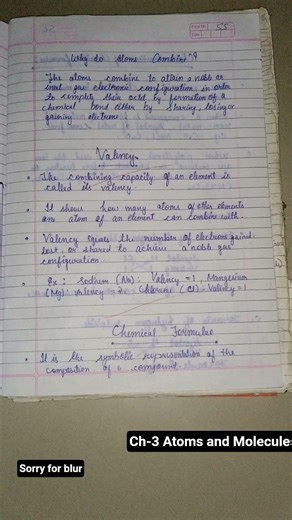 55
Why do Atoms Combine ?
The atoms combine to attain a noble or
inert gas electronic configuration in order
to complete their octet by formation of a
chemical bond either by sharing, losing or
gaining electrons
Valency
• The combining capacity of an element is
called its valency
• It shows how many atoms of other elements
an atom of an element can combine with.
• Valency equals the number of electrons gained
lost, or shared to achieve a noble gas
configuration
• Ex : Sodium (Na): Valency = 1, Mangesium
(Mg): Valency = 2 Chlorine (Cl): Valency = 1
Chemical Formulae
• It is the symbolic representation of the
composition of a compound
Ch-3 Atoms and Molecule
Sorry for blur